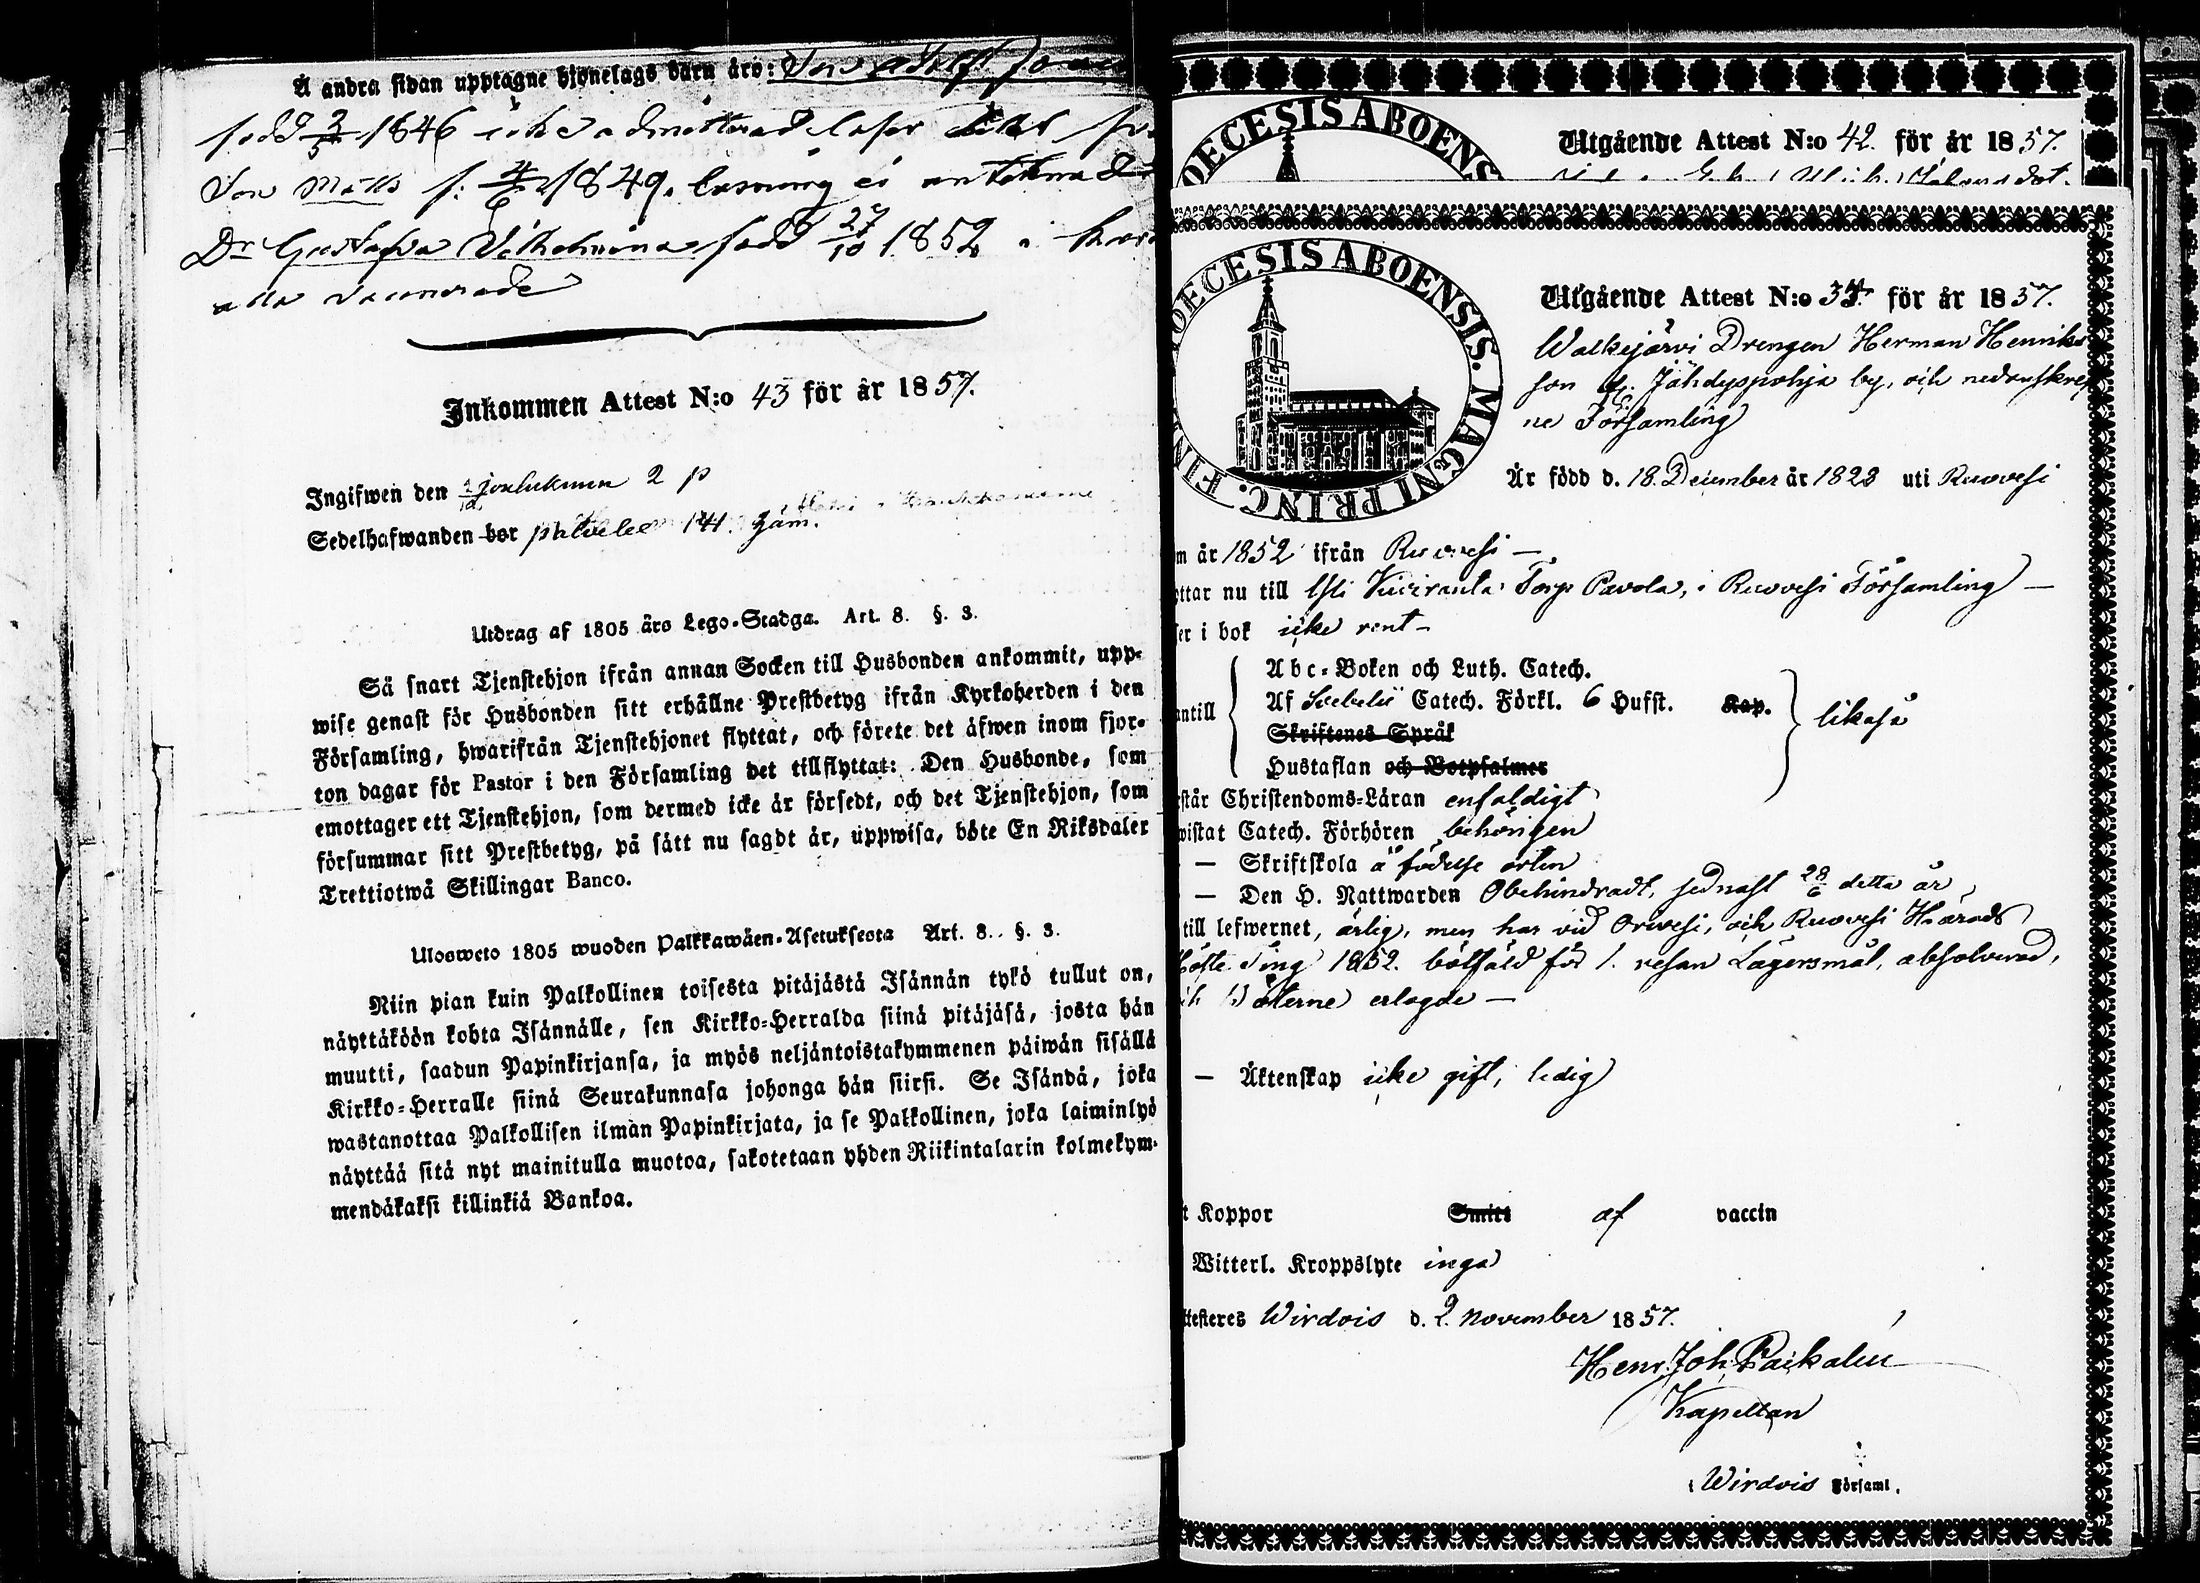 Å andra sidan upptagne hjonelags barn äro: Son Adolf
född 3/5 1846 icke admitterad läser
Son Matts f: 4/6 1849. läsning ei anteknad
Dr Gustafva Vilhelmina född 27/10 1852
alla vaccinerade
Inkommen Attest N:o 43 för år 1857.
Ingifwen den joulukuun 2 p
Sedelhafwanden bor palvelee 141.
Utdrag af 1805 års Lego-Stadga. Art. 8. §. 3.
Så snart Tjenstehjon ifrån annan Socken till Husbonden ankommit, upp-
wise genast för Husbonden sitt erhållne Prestbetyg ifrån Kyrkoherden i den
Församling, hwarifrån Tjenstehjonet flyttat, och förete det äfwen inom fjor-
ton dagar för Pastor i den Församling det tillflyttat: Den Husbonde, som
emottager ett Tjenstehjon, som dermed icke är försedt, och det Tjenstehjon, som
försummar sitt Prestbetyg, på sätt nu sagdt är, uppwisa, böte En Riksdaler
Trettiotwå Skillingar Banco.
Ulosweto 1805 wuoden Palkkawäen-Asetuksesta Art. 8. §. 3.
Niin pian kuin Palkollinen toisesta pitäjästä Isännän tykö tullut on,
näyttäköön kohta Isännälle, sen Kirkko-Herralda siinä pitäjäsä, josta hän
muutti, saadun Papinkirjansa, ja myös neljäntoistakymmenen päiwän sisällä
Kirkko-Herralle siinä Seurakunnasa johonga hän siirsi. Se Isändä, joka
wastanottaa Palkollisen ilman Papinkirjata, ja se Palkollinen, joka laiminlyö
näyttää sitä nyt mainitulla muotoa, sakotetaan yhden Riikintalarin kolmekym-
mendäkaksi killinkiä Bankoa.
OECESIS ABOENS
Utgående Attest N:o 42. för år 1857.
OECESIS ABOENSIS. MAGNI PRINC. FIN
Utgående Attest N:o 37. för år 1857.
Walkejärvi Drengen Herman Henriks
son fr. Jähdyspohja by, och nedanskref
ne Församling
Är född d. 18 December år 1823 uti Ruovesi
m år 1852 ifrån Ruovesi —
ttar nu till Visiranta Torp Pavola, i Ruovesi Församling —
er i bok icke rent —
Abc-Boken och Luth. Catech.
antill Af Svebelii Catech. Förkl. 6 Hufst. Kap. likaså
Skriftenes Språk
Hustaflan och Botpsalmer
står Christendoms-Läran enfaldigt
wistat Catech. Förhören behörigen
— Skriftskola å födelse orten
— Den H. Nattwarden Obehindradt, sednast 28/6 detta år
till lefwernet, ärlig, men har vid Orivesi, och Ruovesi Härads
Höste Ting 1852. bötfäld för 1. resan Lägersmål, absolverad,
ch Böterne erlagde —
— Äktenskap icke gift, ledig
t Koppor Smitt af vaccin
Witterl. Kroppslyte inga
ttesteres Wirdois d. 2. November 1857.
Henr. Joh. Paikalin
Kapellan
i Wirdois Församl.